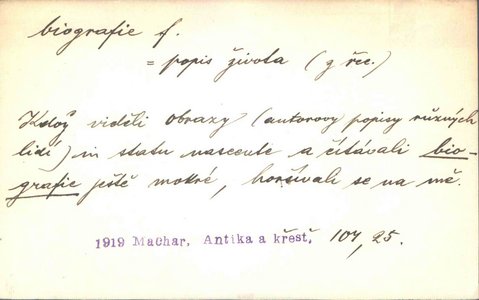 biografie f.
= popis života (z řec.)
Když viděli obrazy (autorovy popisy různých
lidí) in statu nascente a čítávali bio-
grafie ještě mokré, horšívali se na mě.
1919 Machar, Antika a křest, 104, 25.